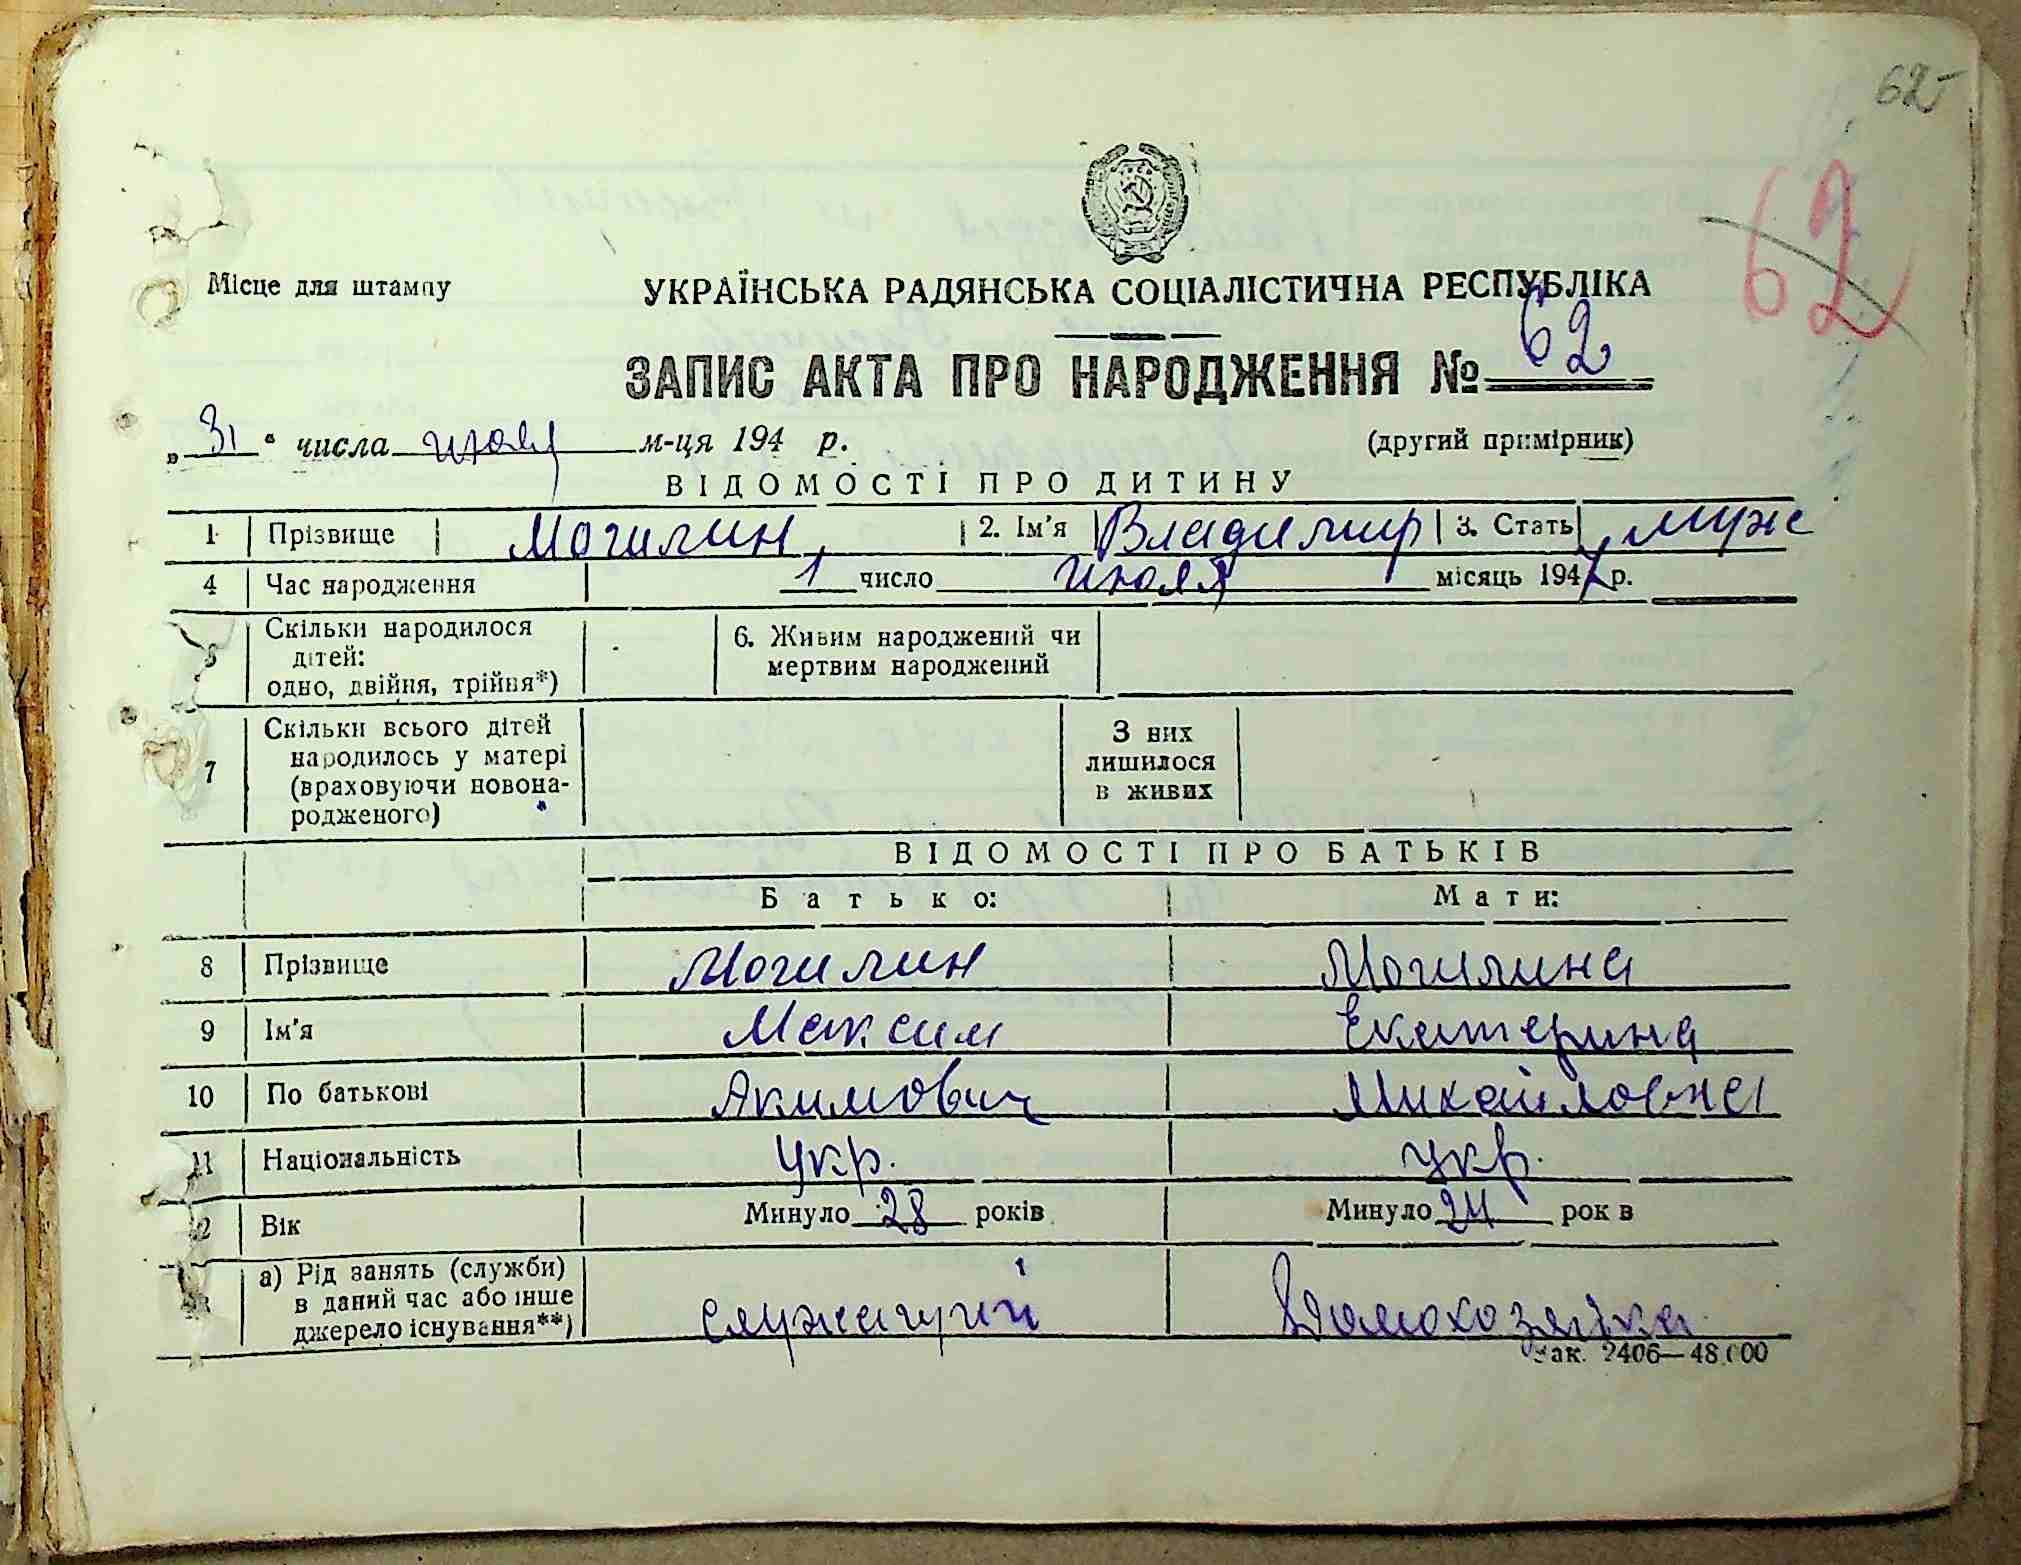 62
62
Місце для штампу
УКРАЇНСЬКА РАДЯНСЬКА СОЦІАЛІСТИЧНА РЕСПУБЛІКА
ЗАПИС АКТА ПРО НАРОДЖЕННЯ № 62
„31“ числа июля м-ця 194 р.
(другий примірник)
ВІДОМОСТІ ПРО ДИТИНУ
1 Прізвище Могилин 2. Ім'я Владимир 3. Стать муж
4 Час народження 1 число июля місяць 1947 р.
5 Скільки народилося
дітей:
одно, двійня, трійня*)
6. Живим народжений чи
мертвим народжений
7 Скільки всього дітей
народилось у матері
(враховуючи новона-
родженого)
З них
лишилося
в живих
ВІДОМОСТІ ПРО БАТЬКІВ
Батько: Мати:
8 Прізвище Могилин Могилина
9 Ім'я Максим Екатерина
10 По батькові Акимович Михайловна
11 Національність укр. укр.
12 Вік Минуло 28 років Минуло 24 рок в
а) Рід занять (служби)
в даний час або інше
джерело існування**)
служащий домохозяйка
Зак. 2406—48.000